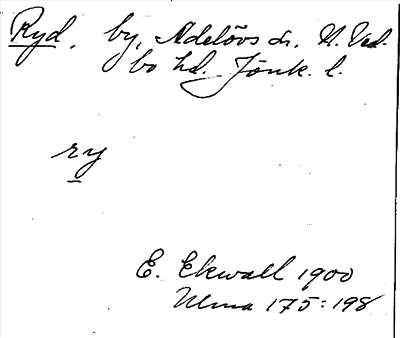 Ryd, by, Adelövs sn. N. Ved-
bo hd. Jönk. l.
ry
E. Ekwall 1900
Ulma 175:198